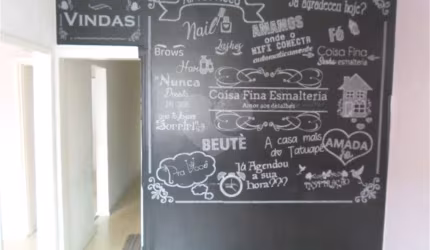 VINDAS
Já agradeceu hoje?
Nail
Lashes
Brows
Hair
AMAMOS
onde o
WIFI CONECTA
automaticamente
Fé
Coisa Fina
esmalteria
"Nunca
Coisa Fina Esmalteria
Amor aos detalhes
BEUTÈ
A casa mais
do Tatuapé
AMADA
Pra Você
Já Agendou
a sua
hora???